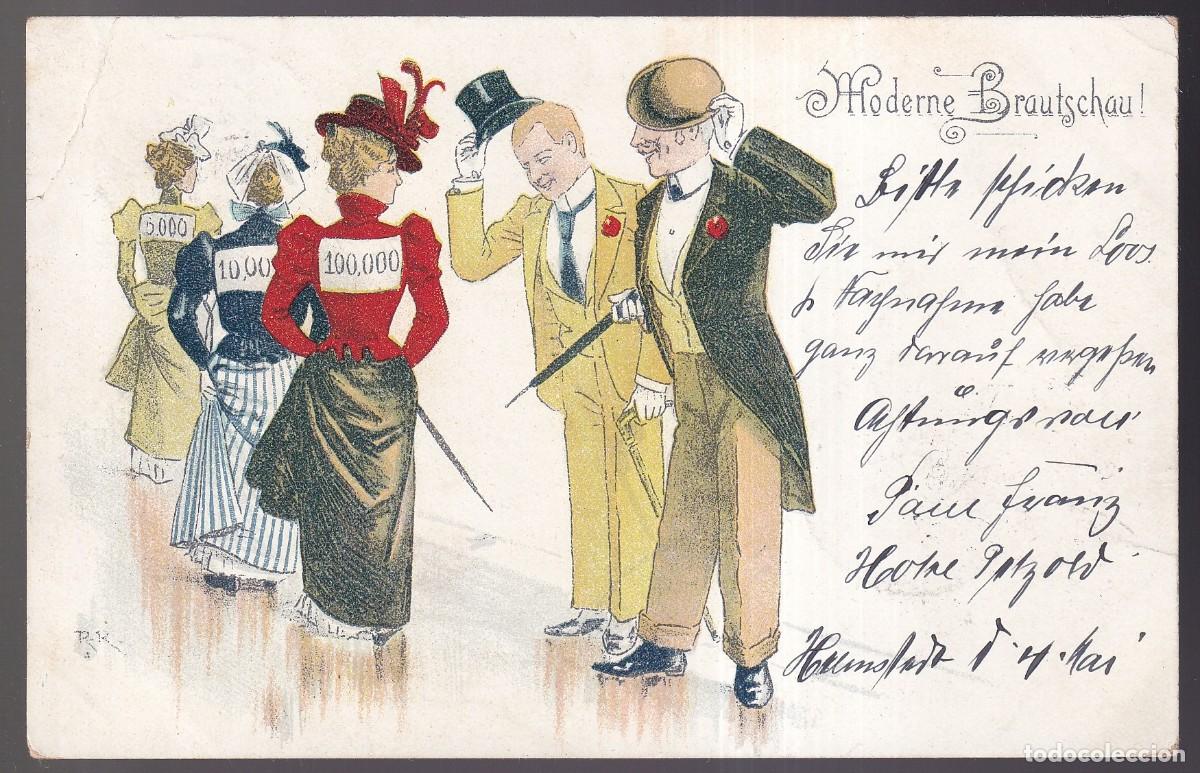 Moderne Brautschau!
5.000
10,00
100,000
Bitte schicken
Sie mir mein Loos
p Nachnahme habe
ganz darauf vergeßen
Achtungsvoll
Paul Franz
Hotel Petzold
Helmstedt d 4. Mai
P.K.
todocoleccion